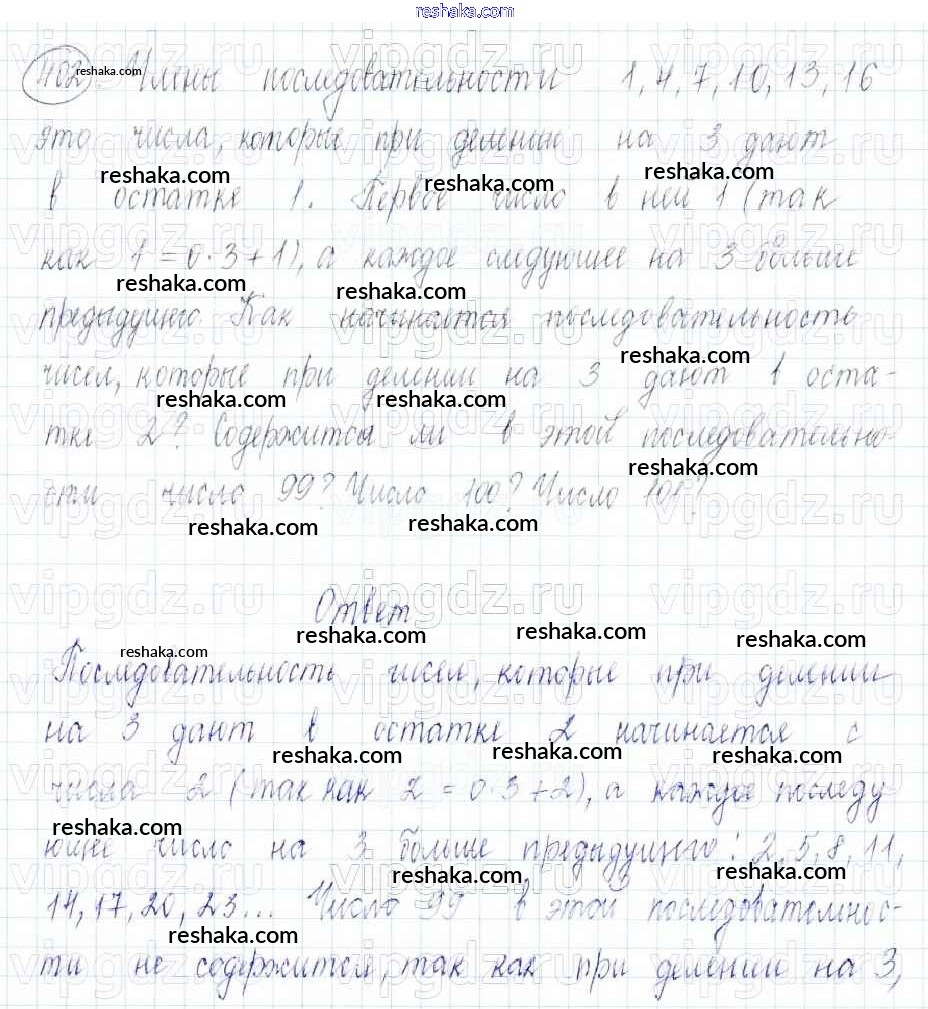 reshaka.com
402 Члены последовательности 1, 4, 7, 10, 13, 16
это числа, которые при делении на 3 дают
в остатке 1. Первое число в ней 1 (так
как 1 = 0·3+1), а каждое следующее на 3 больше
предыдущего. Как начинается последовательность
чисел, которые при делении на 3 дают в оста-
тке 2? Содержится ли в этой последовательно-
сти число 99? Число 100? Число 101?
Ответ
Последовательность чисел, которые при делении
на 3 дают в остатке 2 начинается с
числа 2 (так как 2 = 0·3+2), а каждое последу
ющее число на 3 больше предыдущего: 2, 5, 8, 11,
14, 17, 20, 23... Число 99 в этой последовательнос-
ти не содержится, так как при делении на 3,